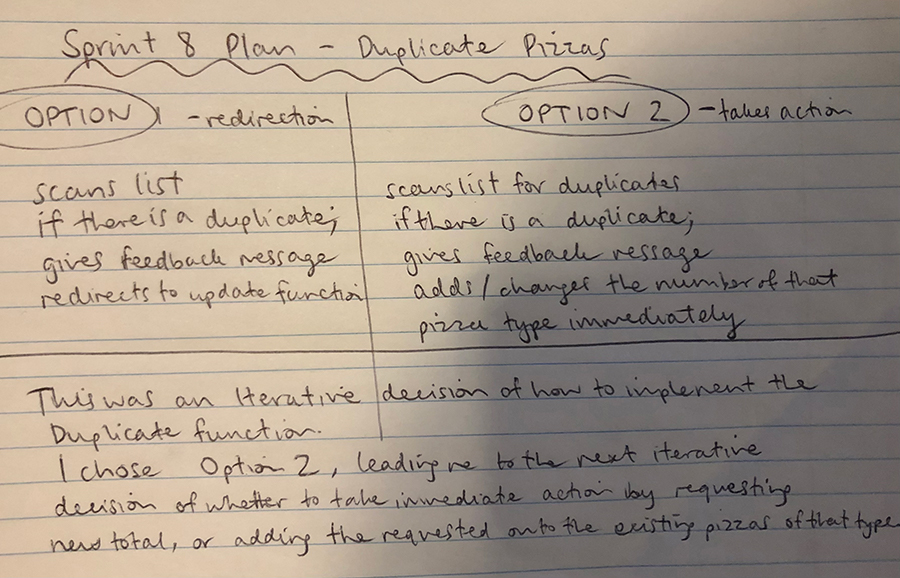 Sprint 8 Plan - Duplicate Pizzas
OPTION 1 - redirection
scans list
if there is a duplicate;
gives feedback message
redirects to update function
OPTION 2 - takes action
scans list for duplicates
if there is a duplicate;
gives feedback message
adds/changes the number of that
pizza type immediately
This was an Iterative decision of how to implement the
Duplicate function.
I chose Option 2, leading me to the next iterative
decision of whether to take immediate action by requesting
new total, or adding the requested onto the existing pizzas of that type